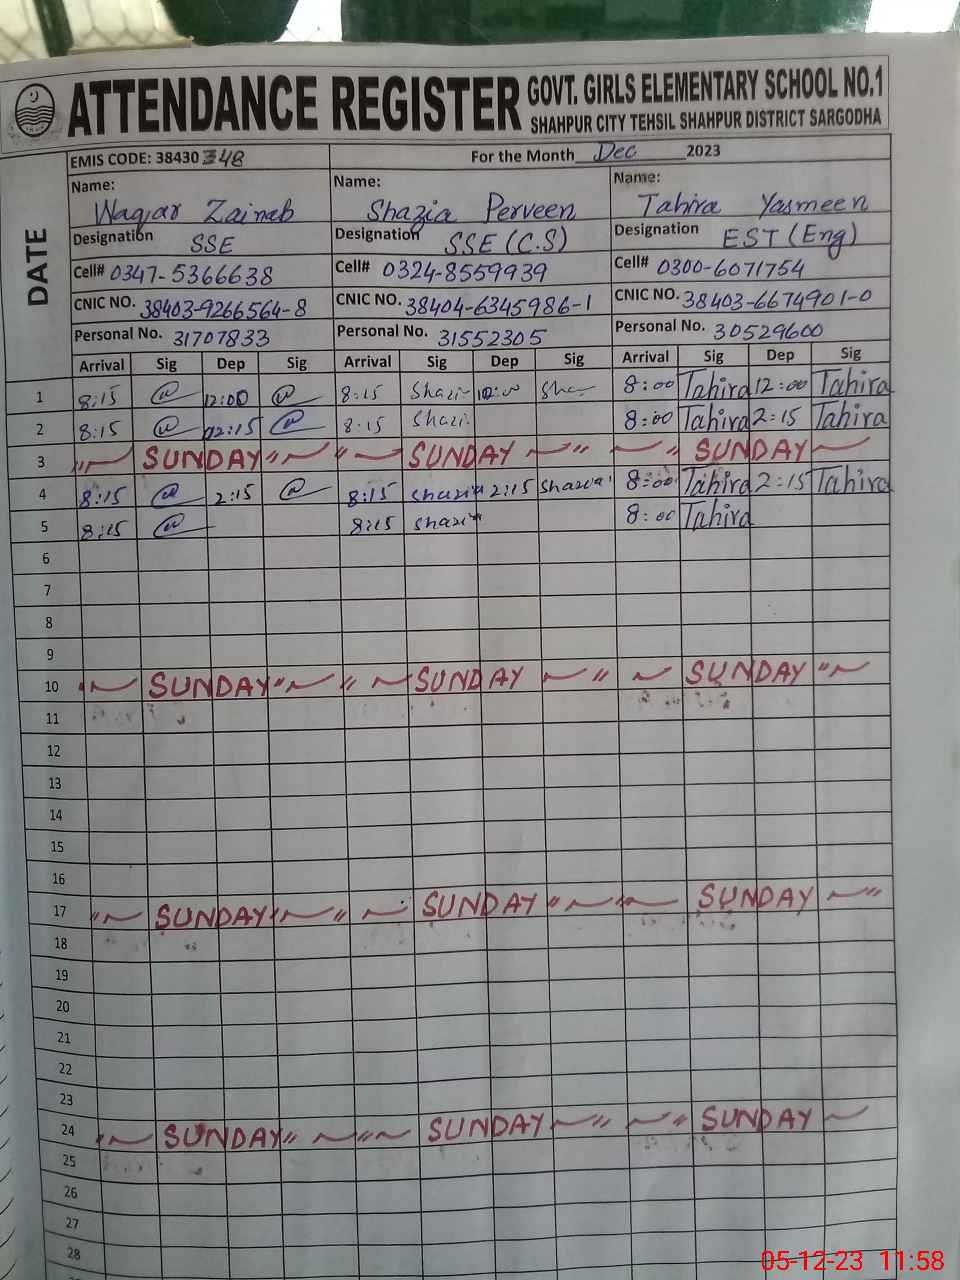 ATTENDANCE REGISTER GOVT. GIRLS ELEMENTARY SCHOOL NO.1
SHAHPUR CITY TEHSIL SHAHPUR DISTRICT SARGODHA
DATE
EMIS CODE: 38430348 For the Month Dec 2023
Name: Name: Name:
Waqar Zainab Shazia Perveen Tahira Yasmeen
Designation SSE Designation SSE (C.S) Designation EST (Eng)
Cell# 0347-5366638 Cell# 0324-8559939 Cell# 0300-6071754
CNIC NO. 38403-9266564-8 CNIC NO. 38404-6345986-1 CNIC NO. 38403-6674901-0
Personal No. 31707833 Personal No. 31552305 Personal No. 30529600
Arrival Sig Dep Sig Arrival Sig Dep Sig Arrival Sig Dep Sig
1 8:15 12:00 8:15 Shazi 8:00 Tahira 12:00 Tahira
2 8:15 8:15 Shazi 8:00 Tahira 2:15 Tahira
3 SUNDAY SUNDAY SUNDAY
4 8:15 2:15 8:15 Shazia 2:15 Shazia 8:00 Tahira 2:15 Tahira
5 8:15 8:15 Shazia 8:00 Tahira
6
7
8
9
10 SUNDAY SUNDAY SUNDAY
11
12
13
14
15
16
17 SUNDAY SUNDAY SUNDAY
18
19
20
21
22
23
24 SUNDAY SUNDAY SUNDAY
25
26
27
28
05-12-23 11:58